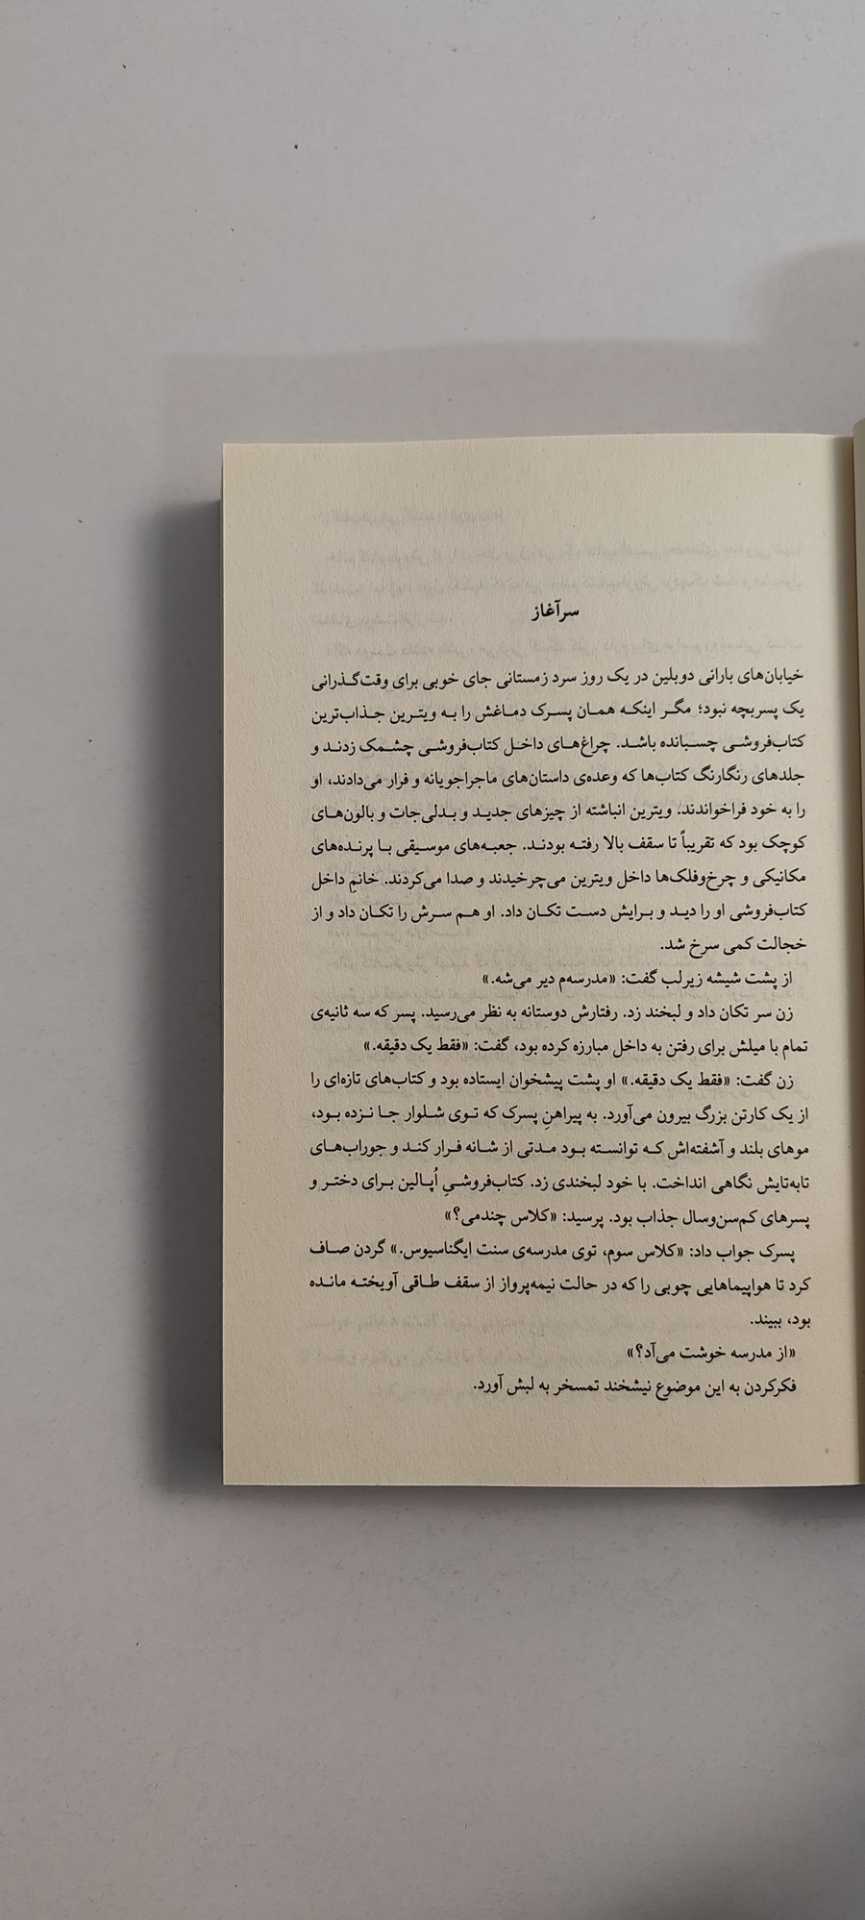 سرآغاز
خیابان‌های بارانی دوبلین در یک روز سرد زمستانی جای خوبی برای وقت‌گذرانی
یک پسربچه نبود؛ مگر اینکه همان پسرک دماغش را به ویترین جذاب‌ترین
کتاب‌فروشی چسبانده باشد. چراغ‌های داخل کتاب‌فروشی چشمک زدند و
جلدهای رنگارنگ کتاب‌ها که وعده‌ی داستان‌های ماجراجویانه و فرار می‌دادند، او
را به خود فراخواندند. ویترین انباشته از چیزهای جدید و بدلی‌جات و بالون‌های
کوچک بود که تقریباً تا سقف بالا رفته بودند. جعبه‌های موسیقی با پرنده‌های
مکانیکی و چرخ‌وفلک‌ها داخل ویترین می‌چرخیدند و صدا می‌کردند. خانمِ داخل
کتاب‌فروشی او را دید و برایش دست تکان داد. او هم سرش را تکان داد و از
خجالت کمی سرخ شد.
از پشت شیشه زیرلب گفت: «مدرسه‌م دیر می‌شه.»
زن سر تکان داد و لبخند زد. رفتارش دوستانه به نظر می‌رسید. پسر که سه ثانیه‌ی
تمام با میلش برای رفتن به داخل مبارزه کرده بود، گفت: «فقط یک دقیقه.»
زن گفت: «فقط یک دقیقه.» او پشت پیشخوان ایستاده بود و کتاب‌های تازه‌ای را
از یک کارتن بزرگ بیرون می‌آورد. به پیراهنِ پسرک که توی شلوار جا نزده بود،
موهای بلند و آشفته‌اش که توانسته بود مدتی از شانه فرار کند و جوراب‌های
تابه‌تایش نگاهی انداخت. با خود لبخندی زد. کتاب‌فروشیِ اُپالین برای دختر و
پسرهای کم‌سن‌وسال جذاب بود. پرسید: «کلاس چندمی؟»
پسرک جواب داد: «کلاس سوم، توی مدرسه‌ی سنت ایگناسیوس.» گردن صاف
کرد تا هواپیماهایی چوبی را که در حالت نیمه‌پرواز از سقف طاقی آویخته مانده
بود، ببیند.
«از مدرسه خوشت می‌آد؟»
فکرکردن به این موضوع نیشخند تمسخر به لبش آورد.